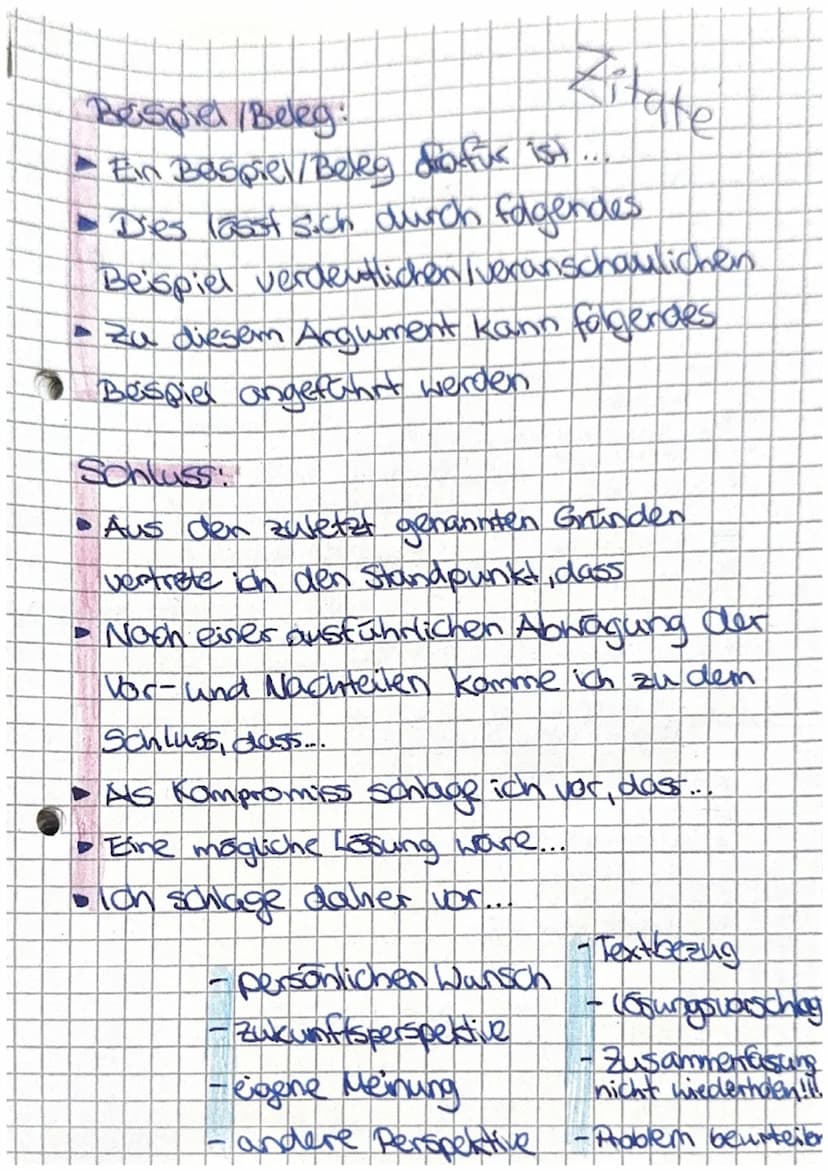 Zitate
Beispiel/Beleg:
▸ Ein Beispiel/Beleg dafür ist...
▸ Dies lässt sich durch folgendes
Beispiel verdeutlichen/veranschaulichen
▸ Zu diesem Argument kann folgendes
Beispiel angeführt werden
Schluss:
▸ Aus den zuletzt genannten Gründen
vertrete ich den Standpunkt, dass
▸ Nach einer ausführlichen Abwägung der
Vor- und Nachteilen komme ich zu dem
Schluss, dass...
▸ Als Kompromiss schlage ich vor, dass...
▸ Eine mögliche Lösung wäre...
▸ Ich schlage daher vor...
- persönlichen Wunsch
- Zukunftsperspektive
- eigene Meinung
- andere Perspektive
- Textbezug
- Lösungsvorschlag
- Zusammenfasung
nicht wiederholen!!!
- Problem beurteilen